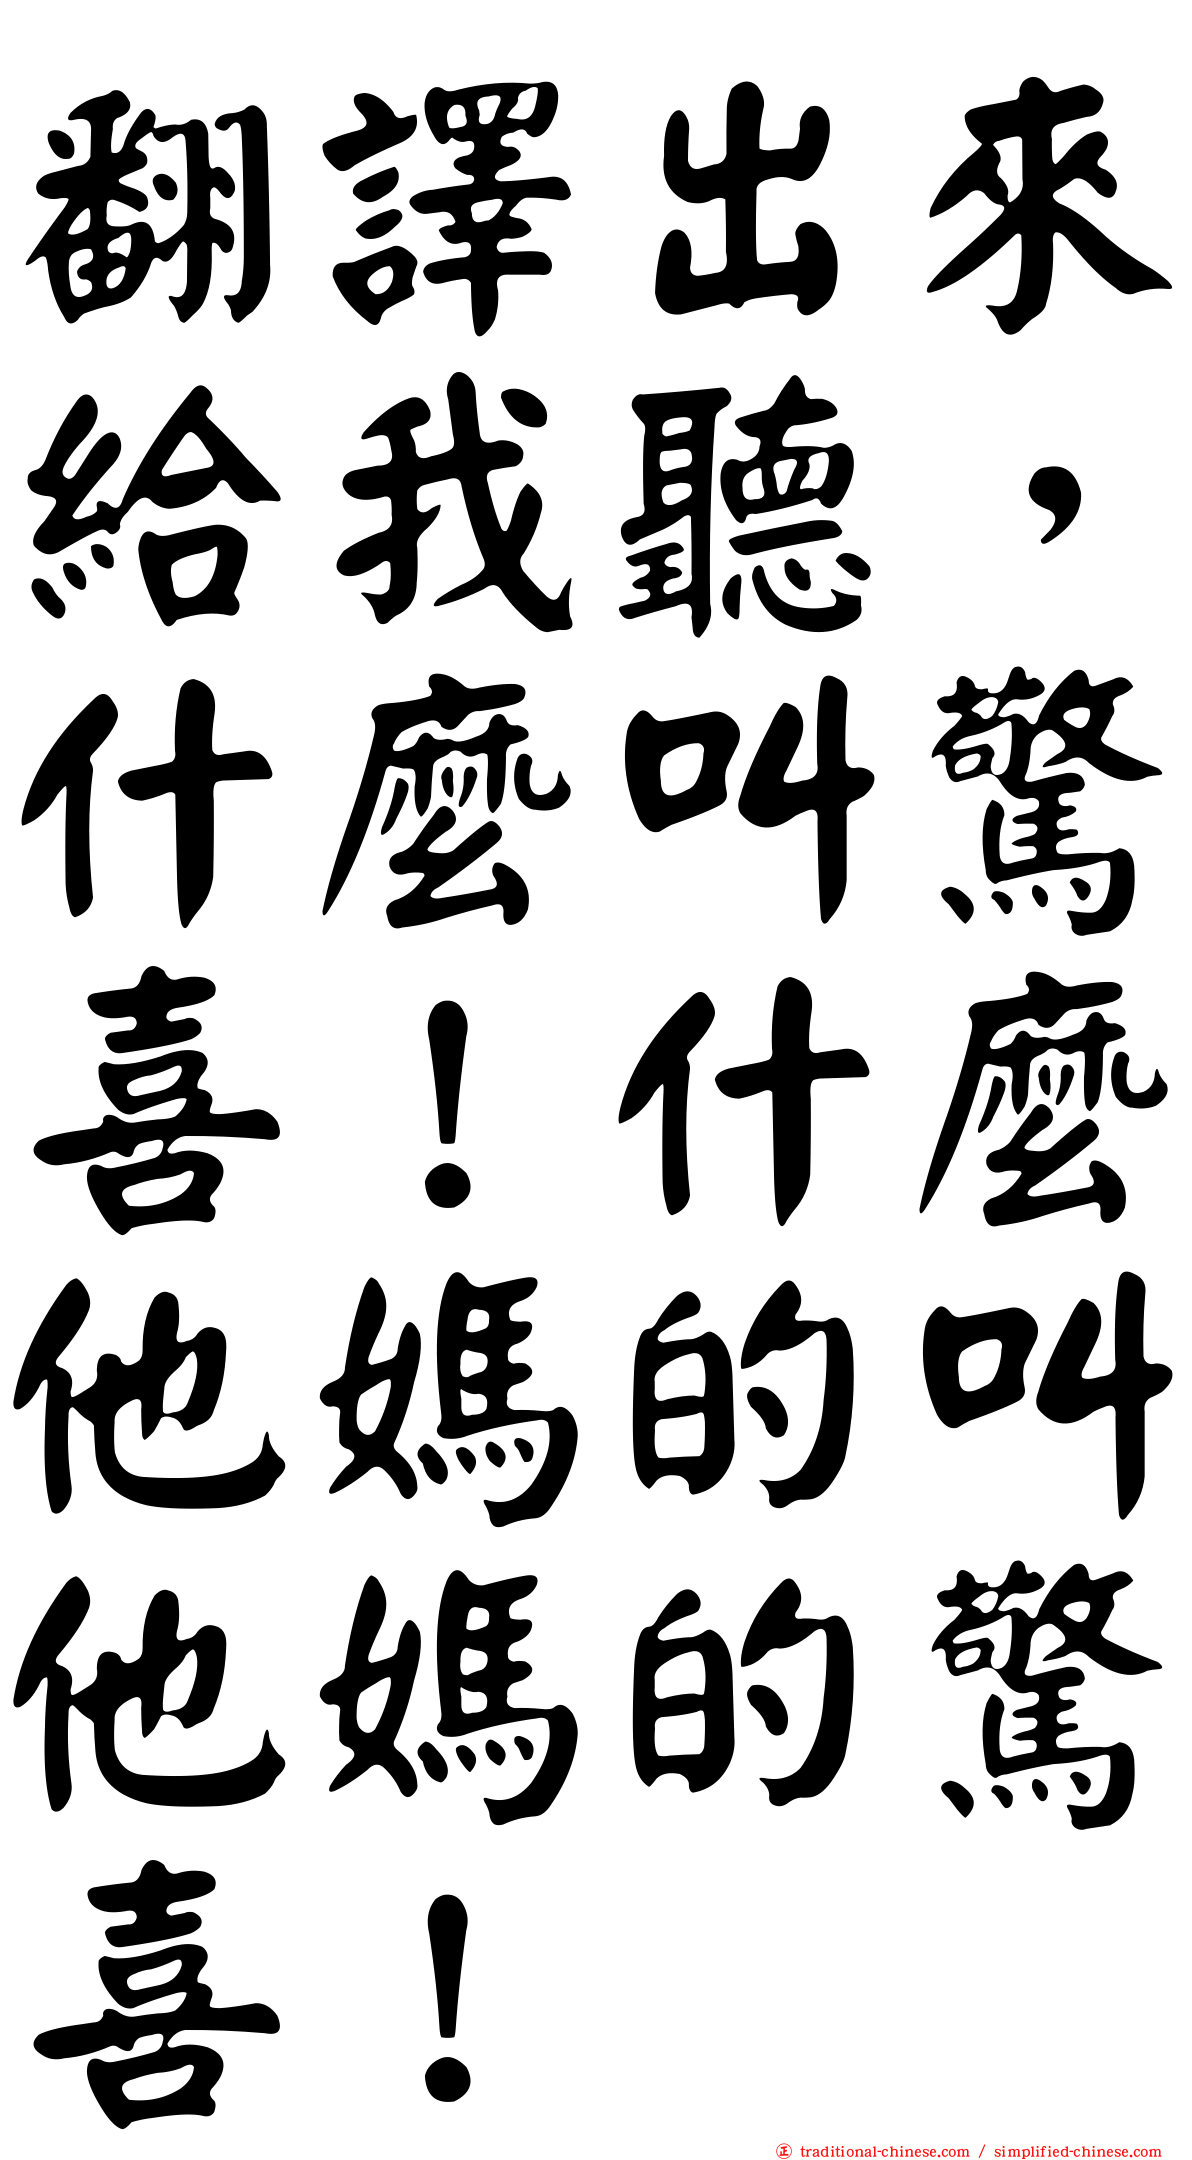 翻譯出來
給我聽，
什麼叫驚
喜！什麼
他媽的叫
他媽的驚
喜！
正 traditional-chinese.com / simplified-chinese.com